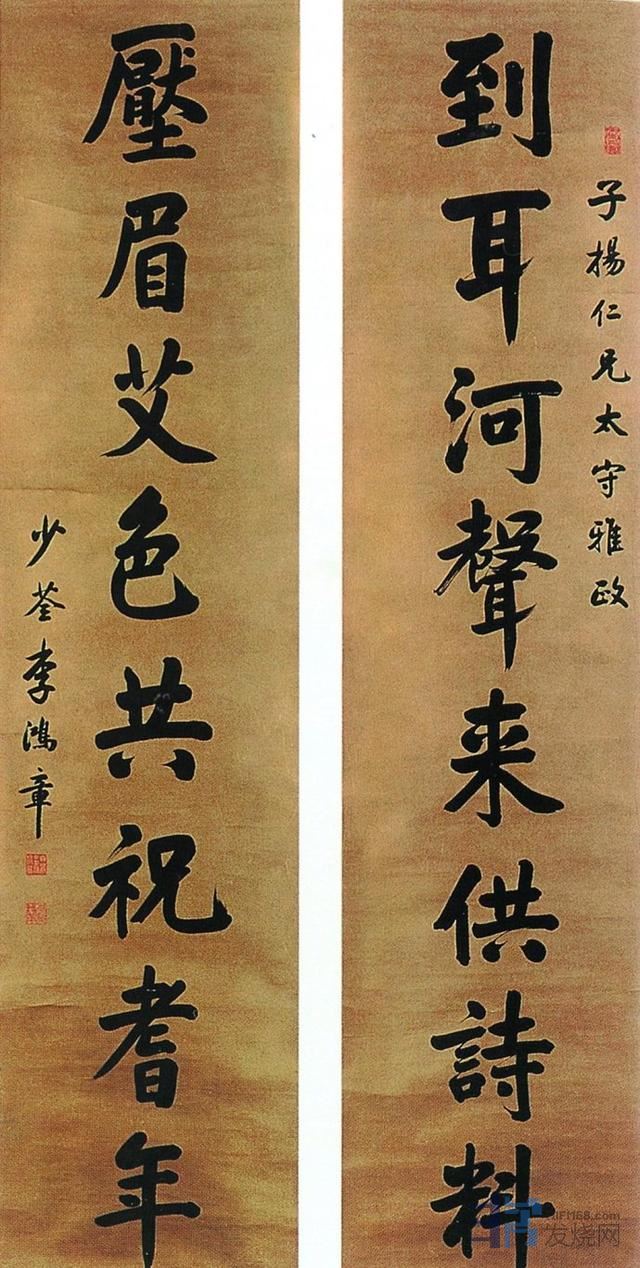 子楊仁兄太守雅政
到耳河聲来供詩料
壓眉艾色共祝耆年
少荃李鴻章
HIFM68.com
发烧网